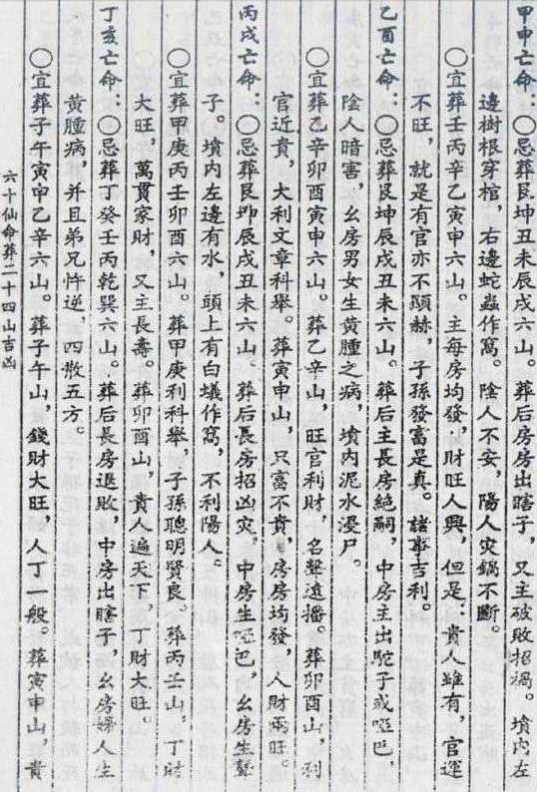 甲申亡命:〇忌葬艮坤丑未辰戌六山。葬后房房出瞎子,又主破敗招禍。墳内左
邊樹根穿棺,右邊蛇蟲作窩。陰人不安,陽人灾鍋不斷。
〇宜葬壬丙辛乙寅申六山。主每房均發,財旺人興,但是:貴人雖有,官運
不旺,就是有官亦不顯赫,子孫發富是真。諸事吉利。
乙酉亡命:〇忌葬艮坤辰戌丑未六山。葬后主長房絶嗣,中房主出駝子或啞巴,
陰人暗害,幺房男女生黄腫之病,墳内泥水浸尸。
〇宜葬乙辛卯酉寅申六山。葬乙辛山,旺官利財,名聲遠播。葬卯酉山,利
官近貴,大利文章科舉。葬寅申山,只富不貴,房房均發,人財兩旺。
丙戌亡命:〇忌葬艮坤辰戌丑未六山。葬后長房招凶灾,中房生啞巴,幺房生聾
子。墳内左邊有水,頭上有白蟻作窩,不利陽人。
〇宜葬甲庚丙壬卯酉六山。葬甲庚利科舉,子孫聰明賢良。葬丙壬山,丁財
大旺,萬貫家財,又主長壽。葬卯酉山,貴人遍天下,丁財大旺。
丁亥亡命:〇忌葬丁癸壬丙乾巽六山。葬后長房退敗,中房出瞎子,幺房婦人生
黄腫病,并且弟兄忤逆,四散五方。
〇宜葬子午寅申乙辛六山。葬子午山,錢財大旺,人丁一般。葬寅申山貴
六十仙命葬二十四山吉凶